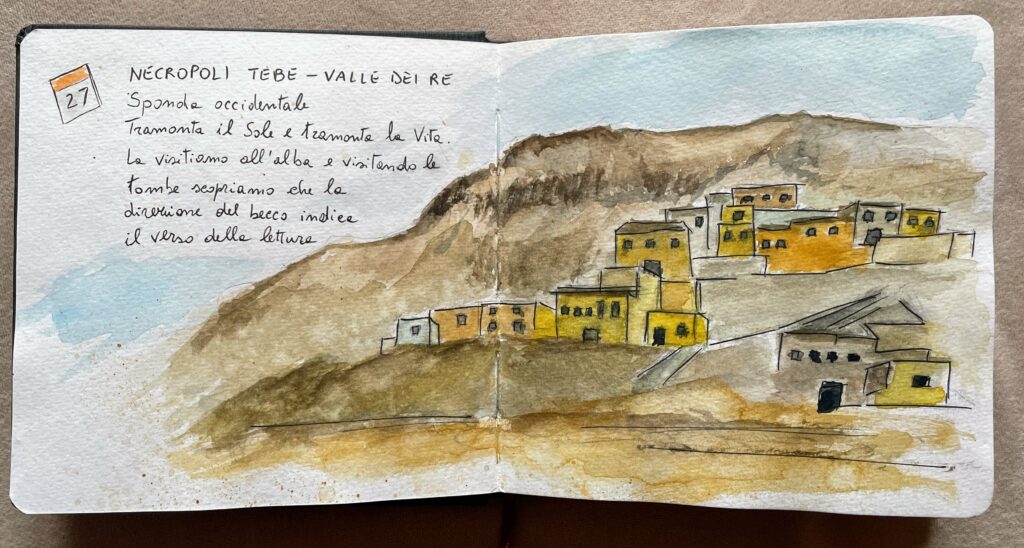 27
NECROPOLI TEBE - VALLE DEI RE
Sponda occidentale
Tramonta il Sole e tramonta la Vita.
La visitiamo all'alba e visitando le
tombe scopriamo che la
direzione del becco indica
il verso della lettura